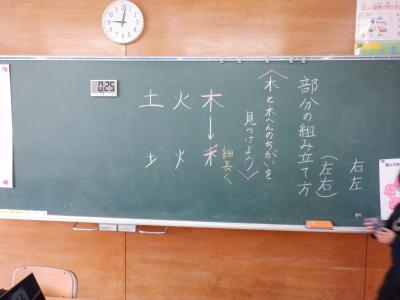 右左
部分の組み立て方
(左右)
〈木と木へんのちがいを
見つけよう〉
木 → 木
細長く
火 火
土 土
0:25